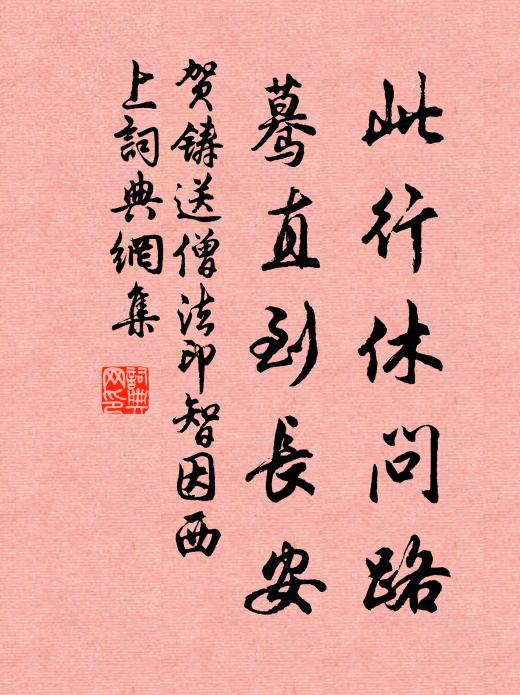 此行休问路
蓦直到長安
贺鑄送僧法印智因西
上詞典網集
詞典网印